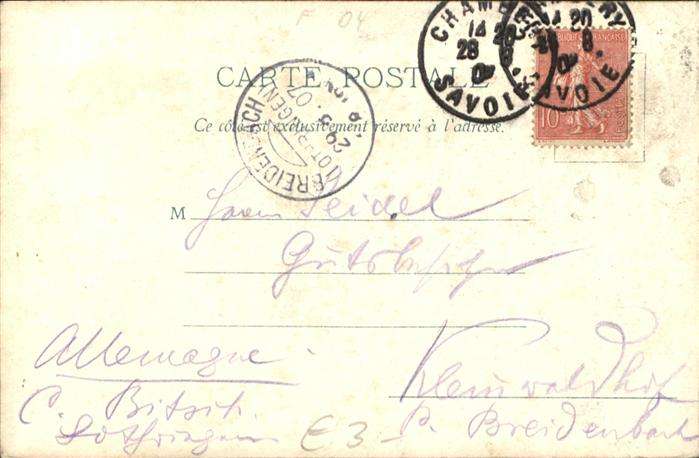 F 04
CHAMBERY
14 20
28 8
SAVOIE
RÉPUBLIQUE FRANÇAISE
10
POSTES
CARTE POSTALE
Ce côté est exclusivement réservé à l'adresse.
BREIDENBACH
(LOTHRINGEN)
29
07
M Herrn Seidel
Gutsbesitzer
Allemagne.
Kleinwaldhof
C. Bitsch.
P. Breidenbach
Lothringen
E3-